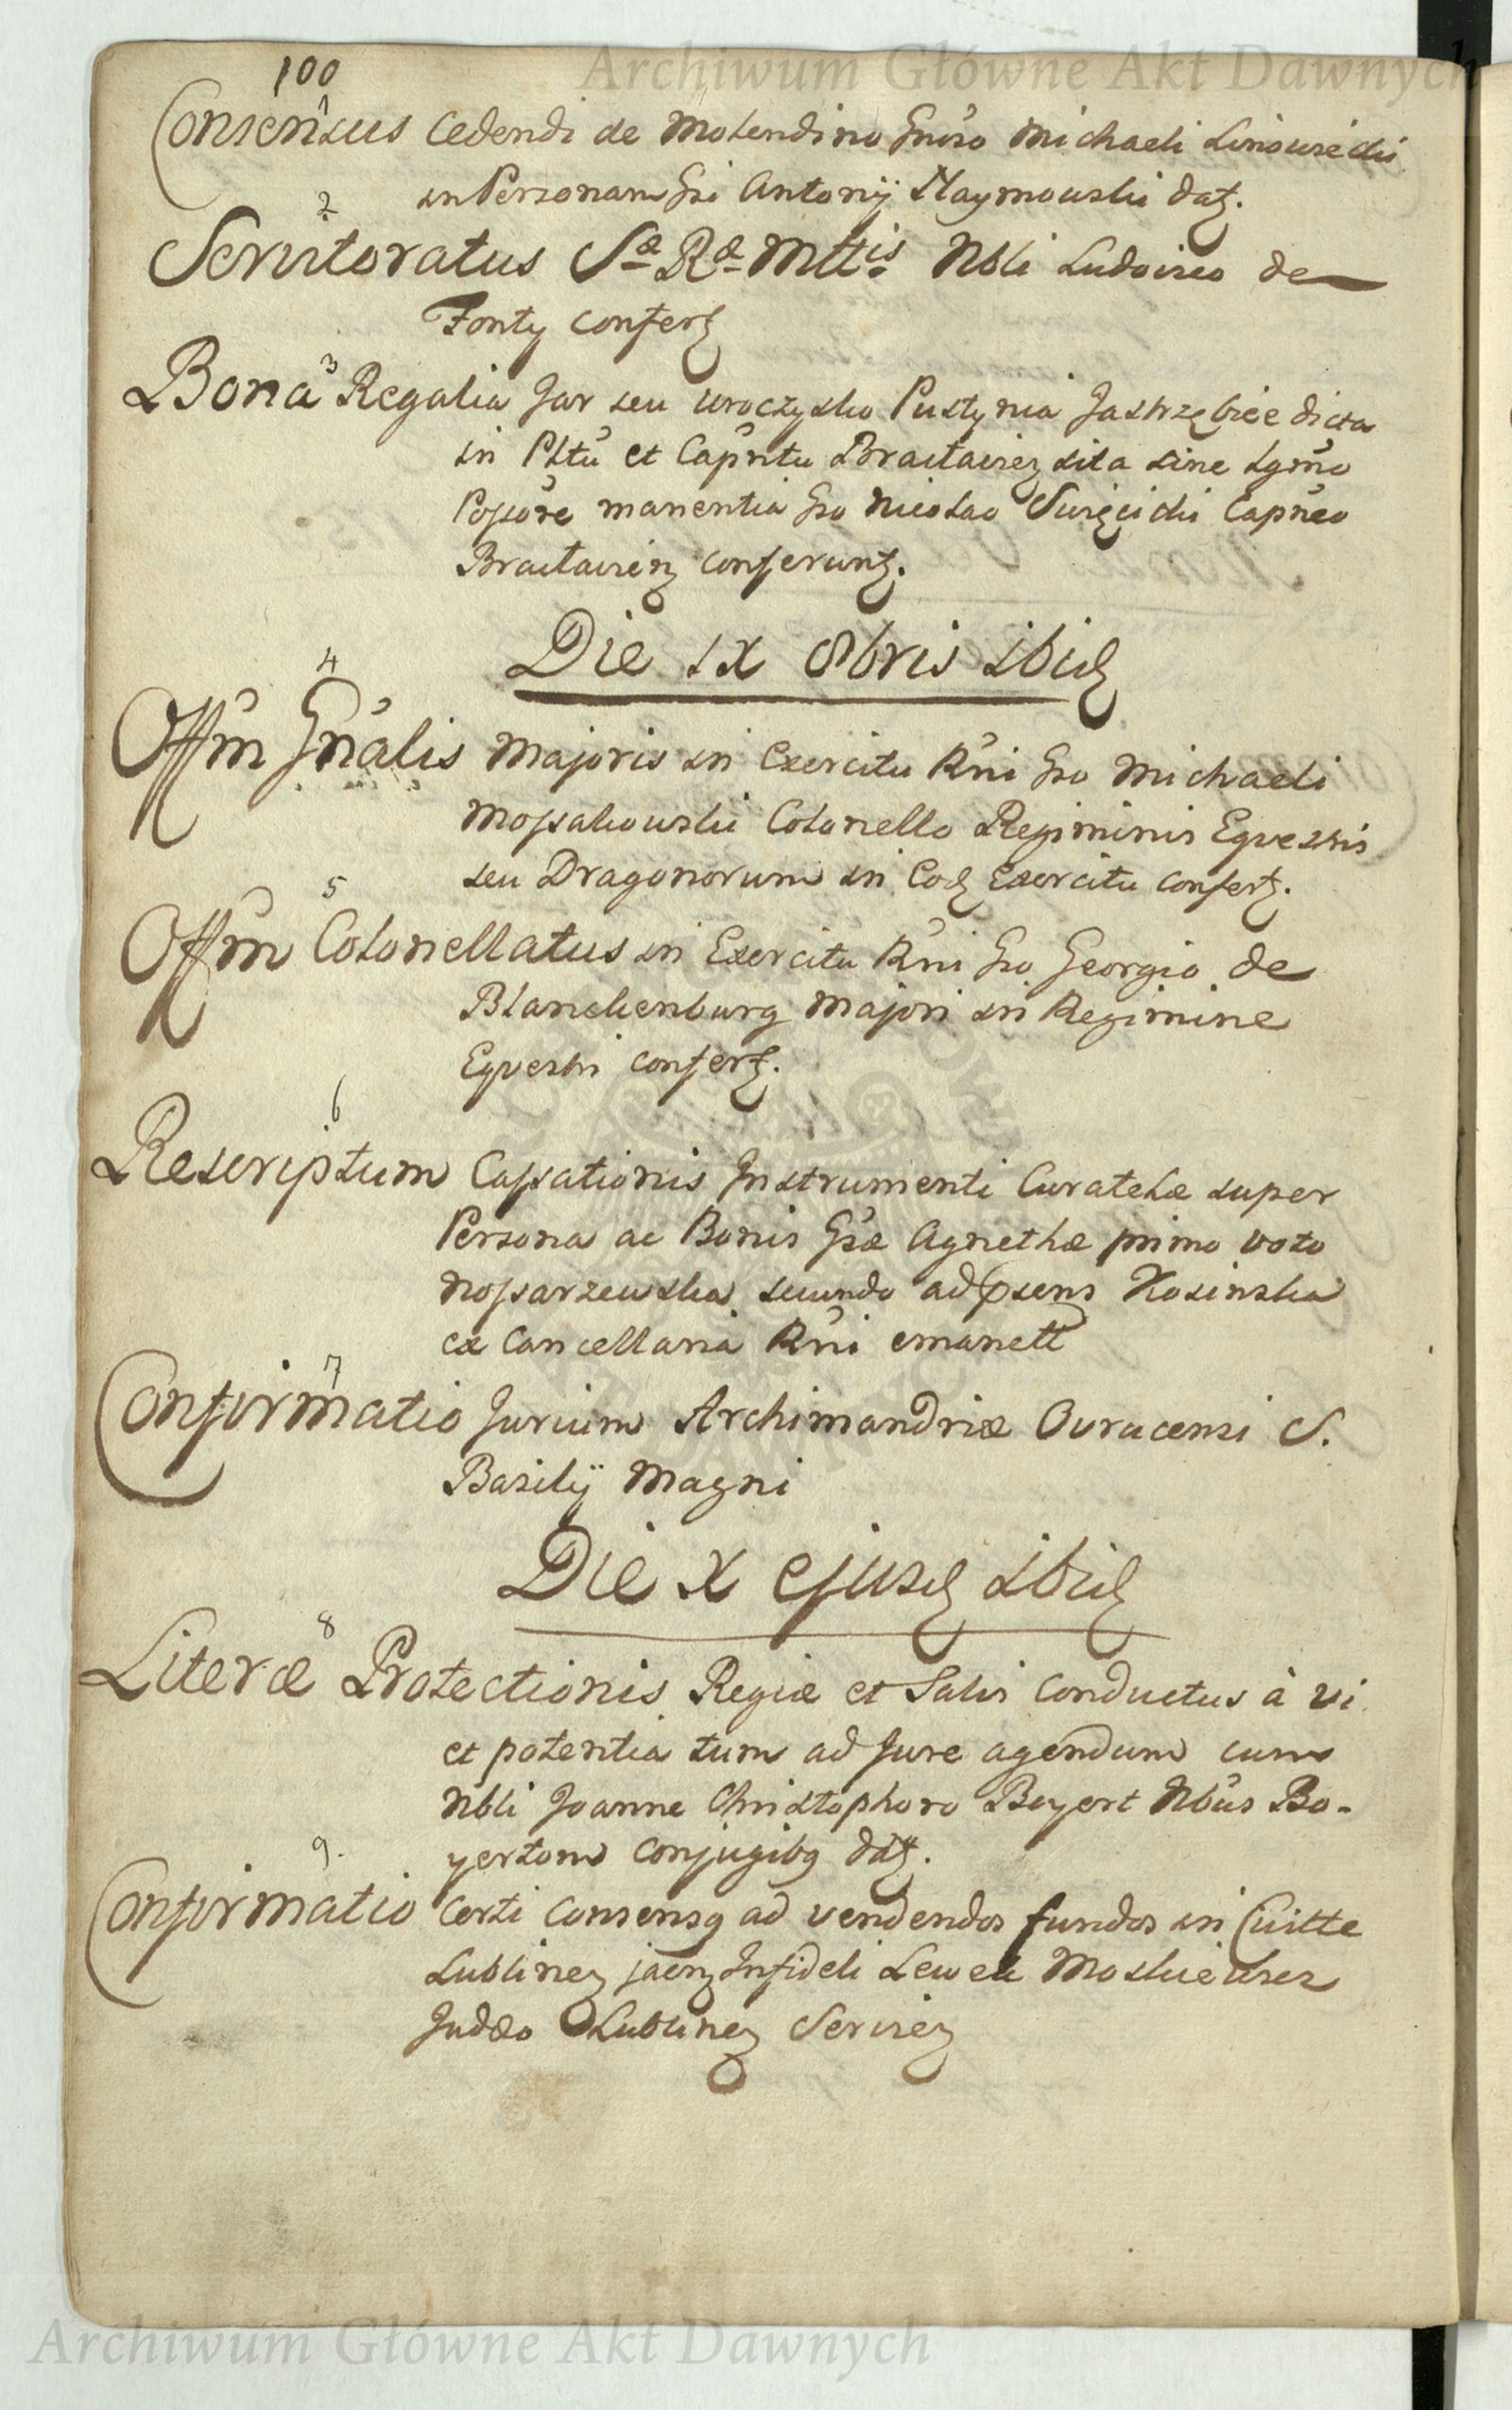 Archiwum Główne Akt Dawnych
100
1
Consensus Cedendi de Molendino Gnöso Michaeli Linowiecki
in Personam Gsi Antonij Naymowski datz.
2
Servitoratus Sæ Ræ Mttis Nbli Ludovico de
Fonty confertz
3
Bona Regalia Jar seu uroczysko Pustynia Jastrzębie dicta
in Pltu et Capntu Braclavien sita sine Lgmo
Possore manentia Gso Nicolao Swięcicki Capneo
Braclavien conferuntz.
Die IX 8bris ibid
4
Offm Gnalis Majoris in Exercitu Rni Gso Michaeli
Mossakowski Colonello Regiminis Equestris
seu Dragonorum in Eod Exercitu confertz.
5
Offm Colonellatus in Exercitu Rni Gso Georgio de
Blanckenburg Majori in Regimine
Equestri confertz.
6
Rescriptum Cassationis Instrumenti Curatelæ super
Persona ac Bonis Gsæ Agnethæ primo voto
Nossarzewska secundo ad psens Kosinska
ex Cancellaria Rni emanett
7
Confirmatio Jurium Archimandriæ Ovrucensi S.
Basilij Magni
Die X ejusd ibid
8
Literæ Protectionis Regiæ et Salvi Conductus à vi
et potentia tum ad Jure agendum cum
Nbli Joanne Christophoro Boyert Nbus Bo-
yertom Conjugibq datz.
9.
Confirmatio Certi Consensq ad vendendos fundos in Civitte
Lublinen jacen Infideli Lewek Moskiewicz
Judæo Lublinen Servien
Archiwum Główne Akt Dawnych